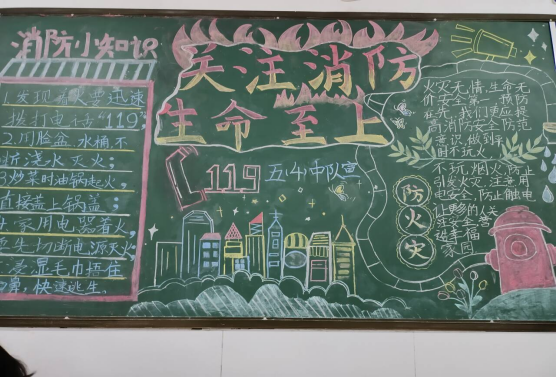 消防小知识
发现
迅速
拨打电话"119"
2.用脸盆、水桶不
断浇水灭火;
3炒菜时油锅起火,
直接盖上锅盖;
家用电器着火,
先切断电源灭火
湿毛巾捂住
快速逃生.
关注消防
生命至上
119
五(4)中队宣
火灾无情,生命无
价安全第一,预防
在先,我们更应提
高消防安全防范
意识,做到
玩火
不玩烟火,防止
引发火灾,注意用
电安全,防止触电
让更多的人
幸福
家园
防火灾